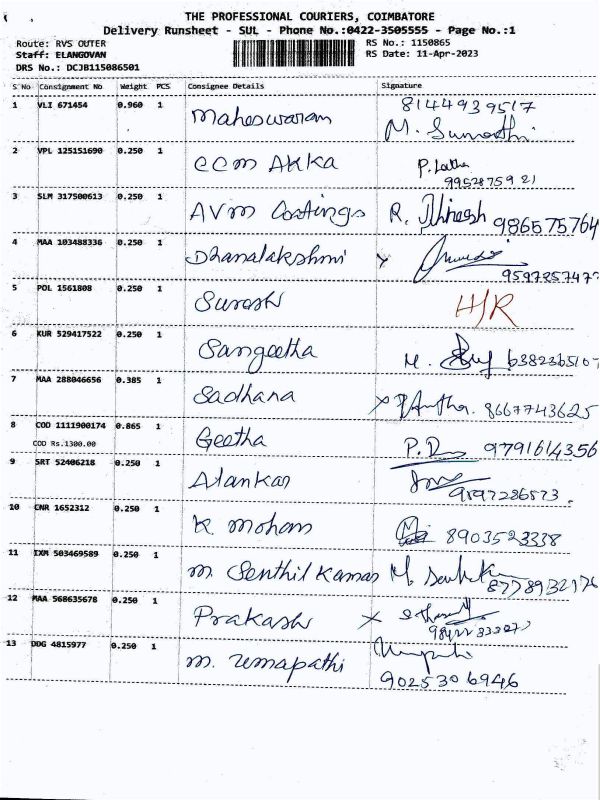 THE PROFESSIONAL COURIERS, COIMBATORE
Delivery Runsheet - SUL - Phone No.:0422-3505555 - Page No.:1
Route: RVS OUTER
RS No.: 1150865
Staff: ELANGOVAN
RS Date: 11-Apr-2023
DRS No.: DCJB115086501
S No Consignment No Weight PCS Consignee Details Signature
1 VLI 671454 0.960 1 Maheswaram 8144939517
M. Sumathi
2 VPL 125151690 0.250 1 CCM AKKA P. Latha
9952875921
3 SLM 317500613 0.250 1 AVM Coatings R. 986575764
4 MAA 103488336 0.250 1 Dhanalakshmi x
959725747
5 POL 1561808 0.250 1 Suresh H/R
6 KUR 529417522 0.250 1 Sangeetha M. 638236510
7 MAA 288046656 0.385 1 Sadhana x 8667743625
8 COD 1111900174 0.865 1 Geetha P. 9791614356
COD Rs.1300.00
9 SRT 52406218 0.250 1 Alankar
9597286573.
10 CNR 1652312 0.250 1 K. Moham 8903523338
11 IXM 503469589 0.250 1 M. Senthil Kamar M.
12 MAA 568635678 0.250 1 Prakash x
13 DDG 4815977 0.250 1 M. Umapathi
9025306946